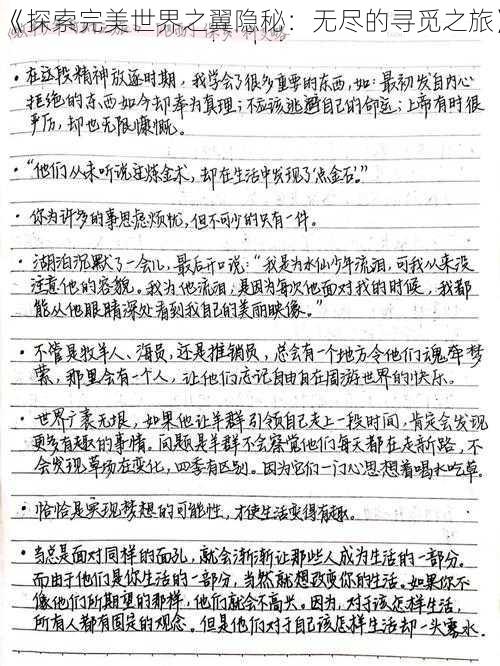 《探索完美世界之翼隐秘：无尽的寻觅之旅》
·在这段精神放逐时期，我学会了很多重要的东西，如：最初发自内心
拒绝的东西如今却奉为真理；不应该逃避自己的命运；上帝有时很
严厉，却也无限慷慨。
·“他们从未听说过炼金术，却在生活中发现了‘点金石’。”
·你为许多的事思虑烦忧，但不可少的只有一件。
·湖泊沉默了一会儿，最后开口说：“我是为水仙少年流泪，可我从来没
注意他的容貌。我为他流泪，是因为每次他面对我的时候，我都
能从他眼睛深处看到我自己的美丽映像。”
·不管是牧羊人、海员，还是推销员，总会有一个地方令他们魂牵梦
萦，那里会有一个人，让他们忘记自由自在周游世界的快乐。
·世界广袤无垠，如果他让羊群引领自己走上一段时间，肯定会发现
更多有趣的事情。问题是羊群不会察觉他们每天都在走新路，不
会发现草场在变化，四季有区别。因为它们一门心思想着喝水吃草。
·恰恰是实现梦想的可能性，才使生活变得有趣。
·当总是面对同样的面孔，就会渐渐让那些人成为生活的一部分。
而由于他们是你生活的一部分，当然就想改变你的生活。如果你不
像他们所期望的那样，他们就会不高兴。因为，对于该怎样生活，
所有人都有固定的观念。但是他们对于自己该怎样生活却一头雾水。